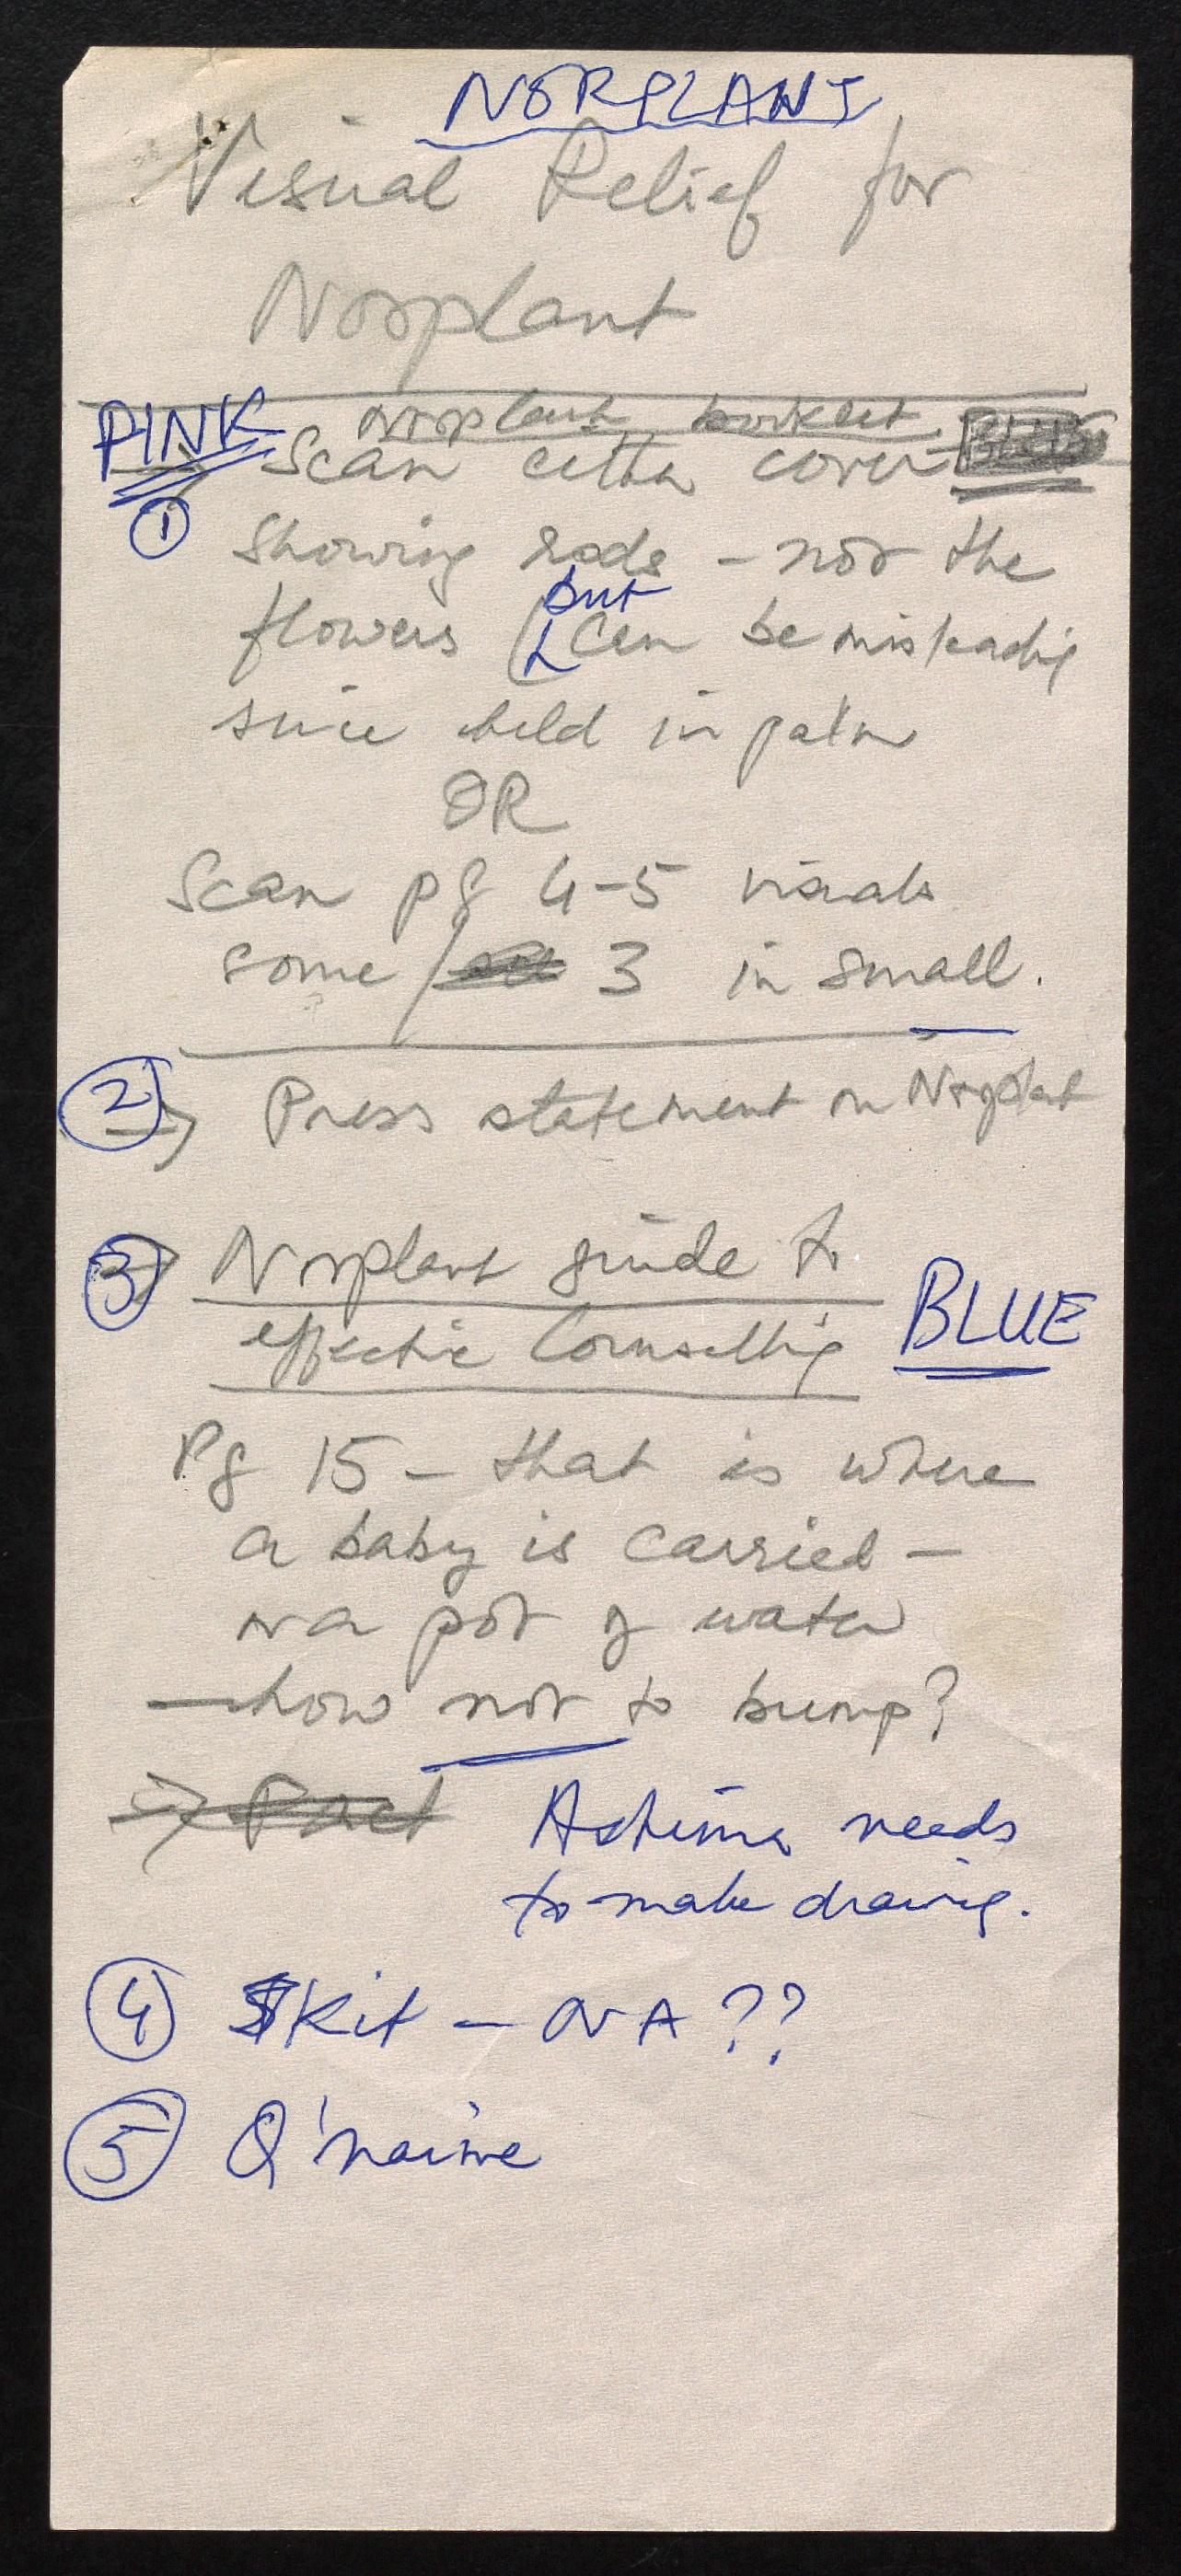 NORPLANT
Visual Relief for
Norplant
PINK Norplant booklet
→ Scan either cover
① Showing rods – not the
flowers (but Can be misleading
since held in palm
OR
Scan pg 4-5 visuals
some / 3 in small.
② → Press statement on Norplant
③ → Norplant guide to
effective Counselling BLUE
Pg 15 – that is where
a baby is carried –
or a pot of water
– how not to bump?
Ashima needs
to make drawing.
④ Skit – OR A ??
⑤ Q'naire